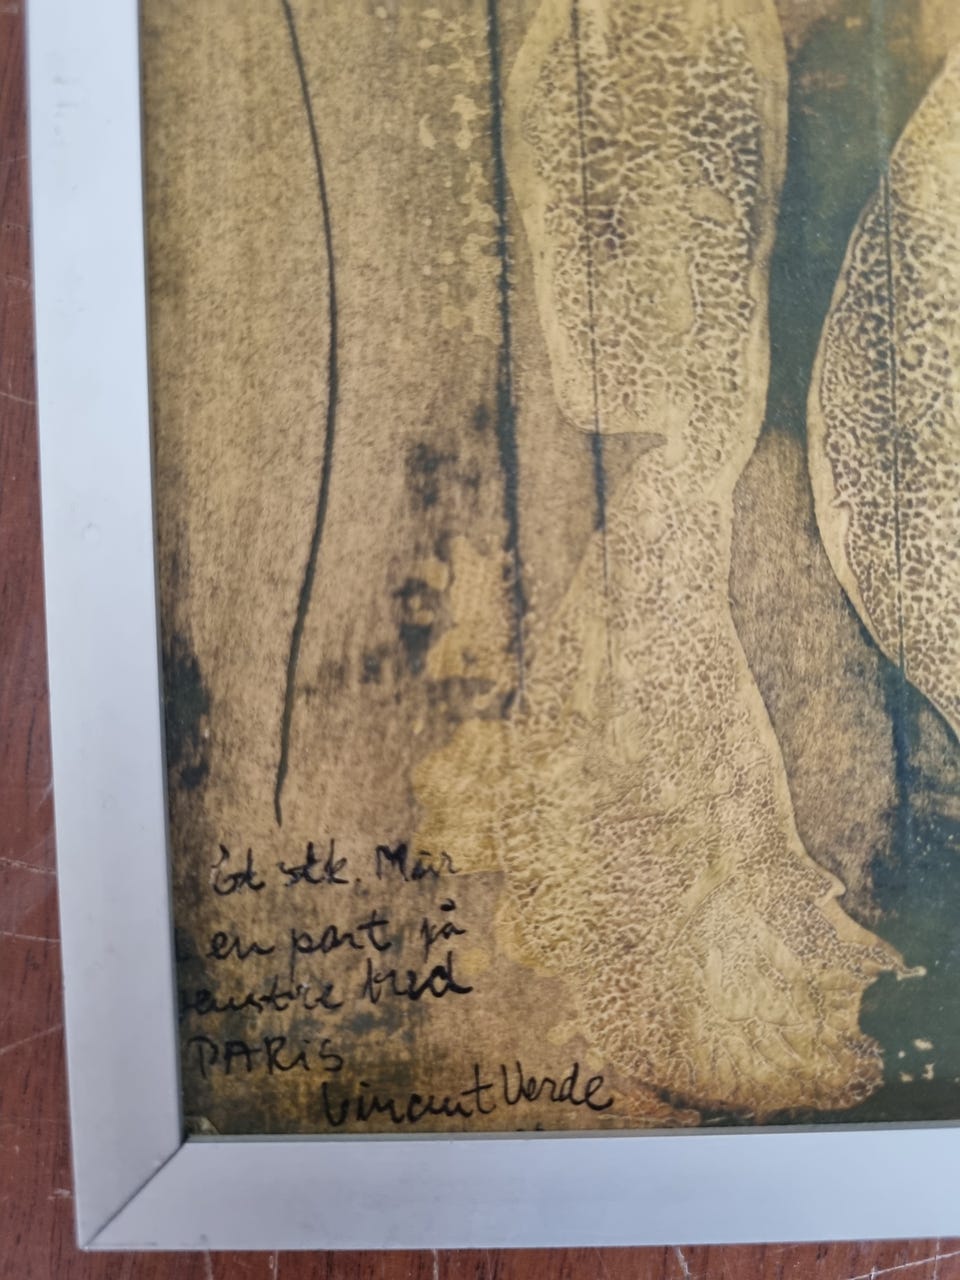 Et stk. Mur
en port på
venstre bred
PARiS
Vincent Verde